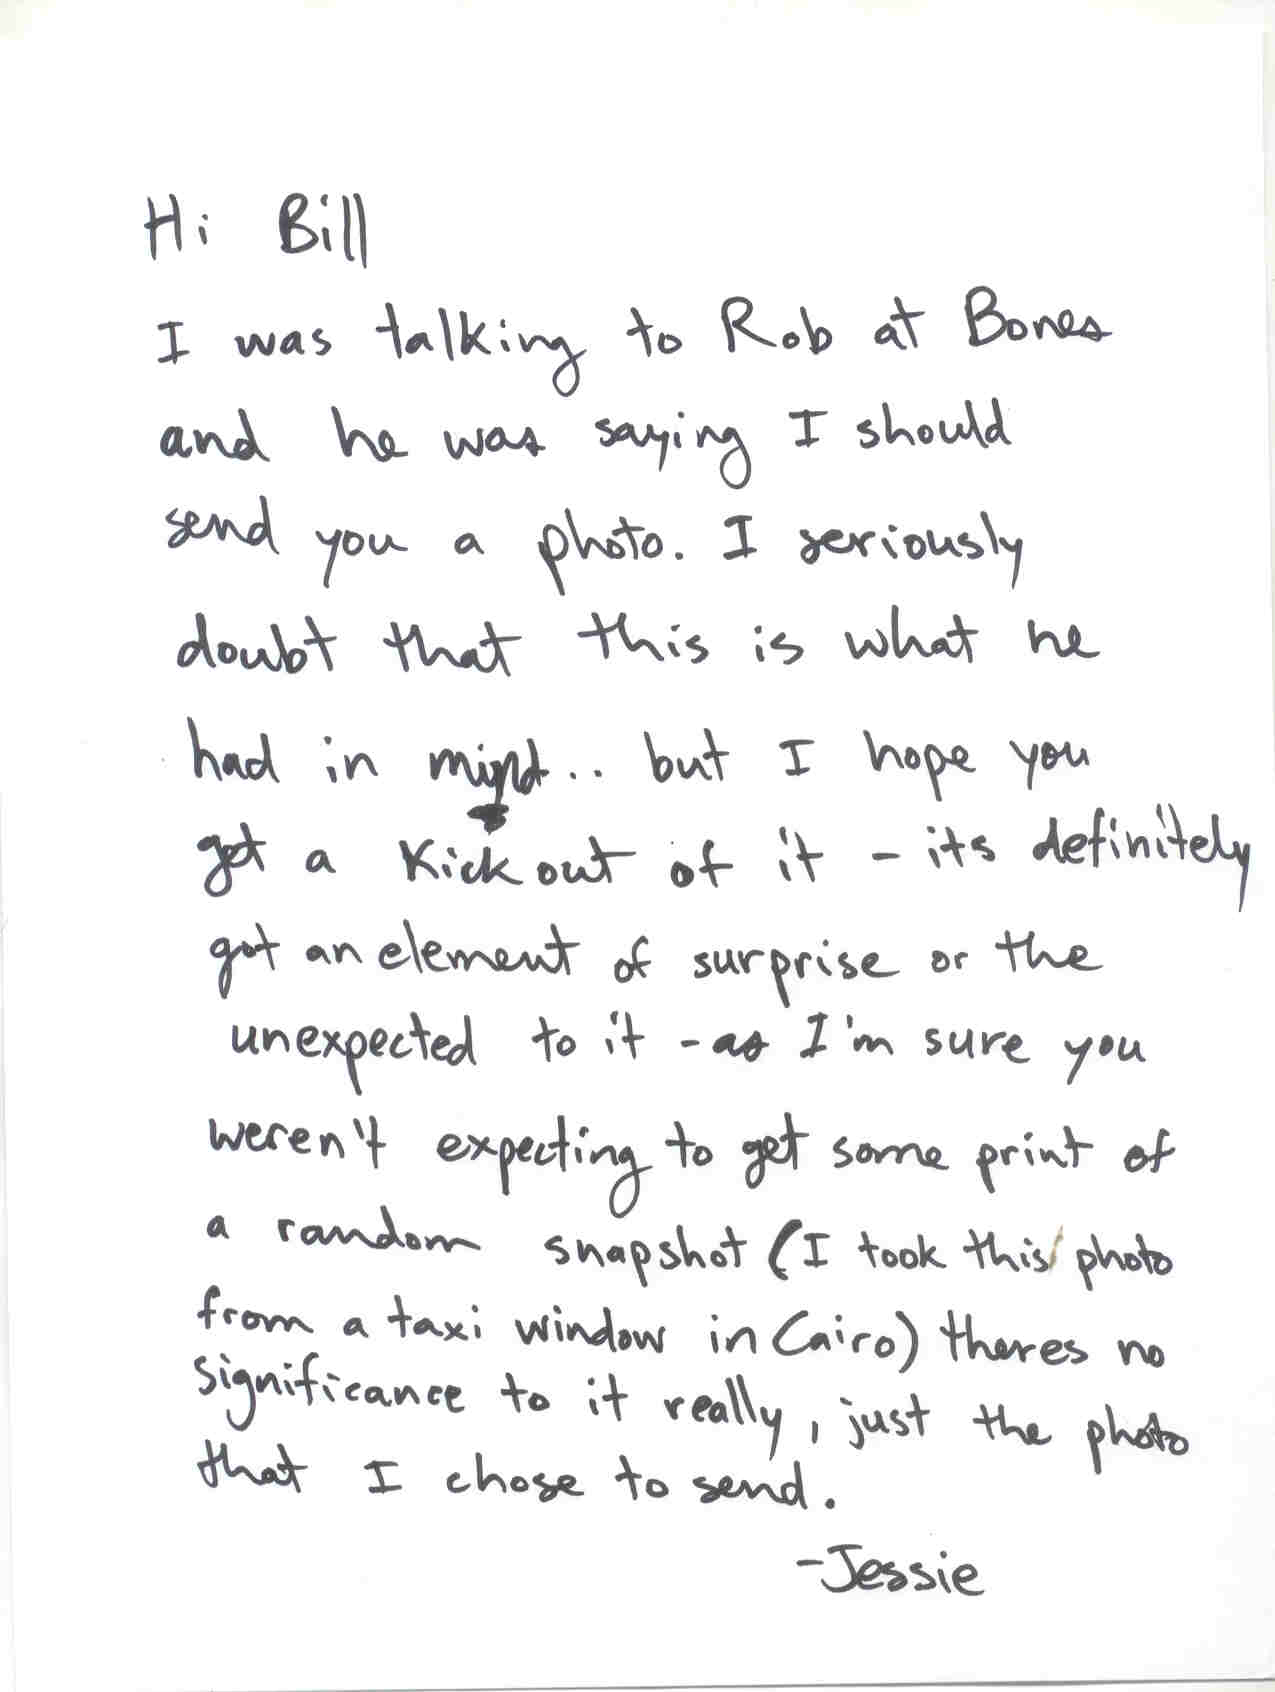 Hi Bill
I was talking to Rob at Bones
and he was saying I should
send you a photo. I seriously
doubt that this is what he
had in mind.. but I hope you
get a kick out of it - its definitely
got an element of surprise or the
unexpected to it - as I'm sure you
weren't expecting to get some print of
a random snapshot (I took this photo
from a taxi window in Cairo) theres no
significance to it really, just the photo
that I chose to send.
-Jessie